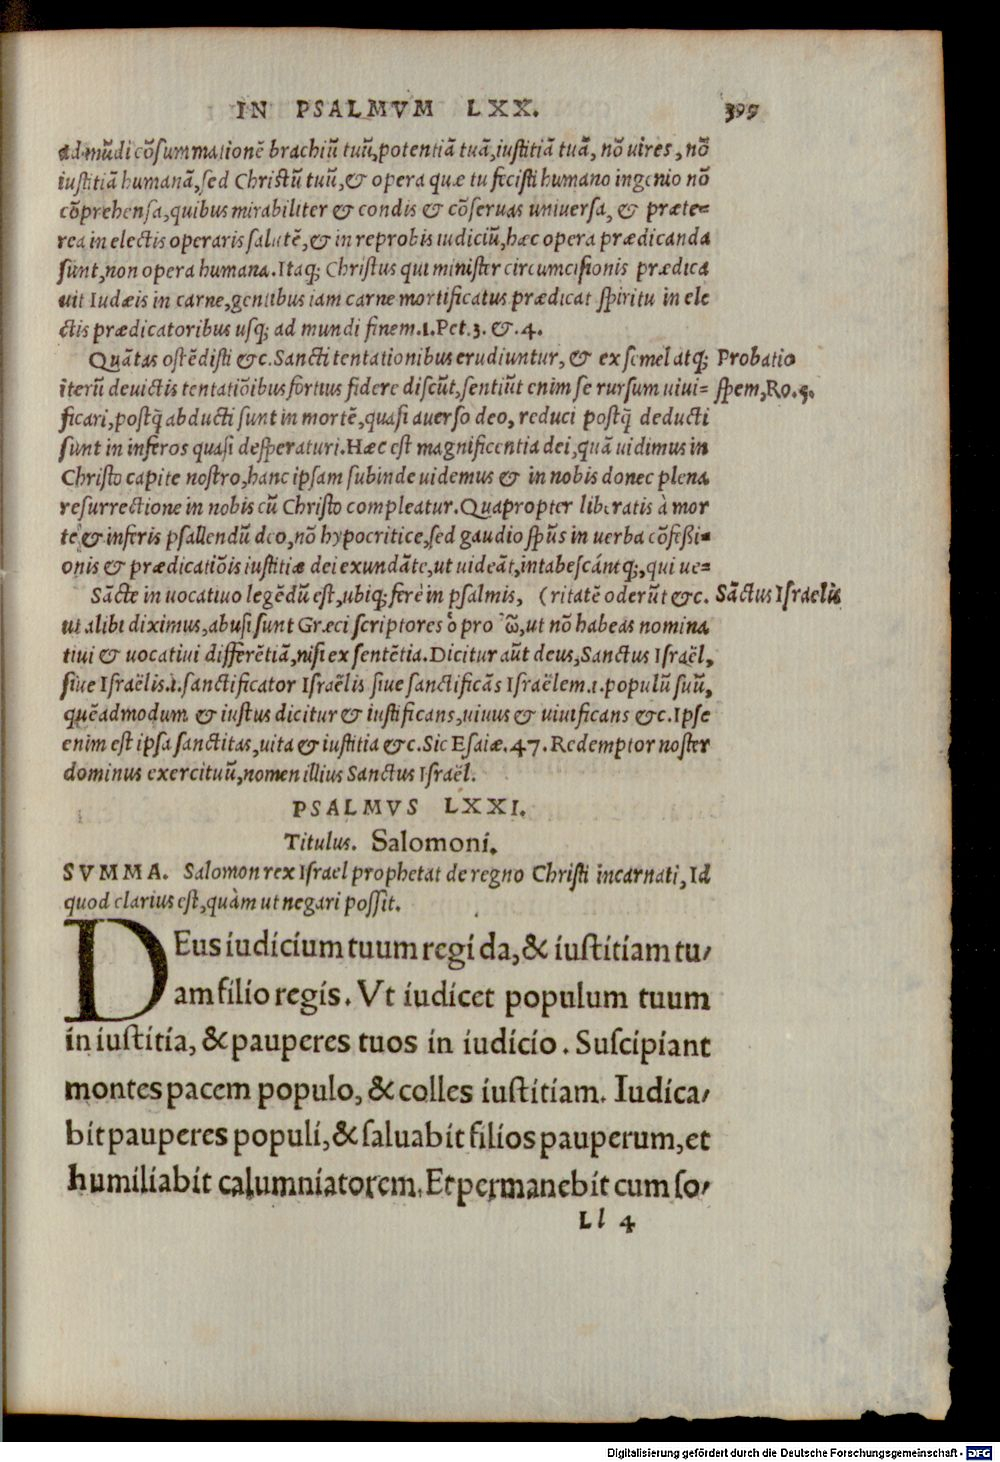 IN PSALMVM LXX. 399
ad mũdi cõsummationẽ brachiũ tuũ,potentiã tuã,iustitiã tuã, nõ uires, nõ
iustitiã humanã,sed Christũ tuũ,& opera quæ tu fecisti humano ingenio nõ
cõprehensa,quibus mirabiliter & condis & cõseruas uniuersa, & præte=
rea in electis operaris salutẽ,& in reprobis iudiciũ,hæc opera prædicanda
sunt,non opera humana.Itaq; Christus qui minister circumcisionis prædica
uit Iudæis in carne,gentibus iam carne mortificatus prædicat spiritu in ele
ctis prædicatoribus usq; ad mundi finem.1.Pet.3. &.4.
Quãtas ostẽdisti &c.Sancti tentationibus erudiuntur, & ex semel atq; Probatio
iterũ deuictis tentatiõibus fortius fidere discũt,sentiũt enim se rursum uiui= spem,Ro.5.
ficari,postq̃ abducti sunt in mortẽ,quasi auerso deo, reduci postq̃ deducti
sunt in inferos quasi desperaturi.Hæc est magnificentia dei,quã uidimus in
Christo capite nostro,hanc ipsam subinde uidemus & in nobis donec plena
resurrectione in nobis cũ Christo compleatur.Quapropter liberatis à mor
te & inferis psallendũ deo,nõ hypocritice,sed gaudio spũs in uerba cõfeßi=
onis & prædicatiõis iustitiæ dei exundãte,ut uideãt,intabescántq;,qui ue=
Sãcte in uocatiuo legẽdũ est,ubiq; ferè in psalmis, (ritatẽ oderũt &c. Sãctus Israelis
ut alibi diximus,abusi sunt Græci scriptores ὁ pro ὦ,ut nõ habeas nomina
tiui & uocatiui differẽtiã,nisi ex sentẽtia.Dicitur aũt deus,Sanctus Israël,
siue Israëlis.i.sanctificator Israëlis siue sanctificãs Israëlem.i.populũ suũ,
quẽadmodum & iustus dicitur & iustificans,uiuus & uiuificans &c.Ipse
enim est ipsa sanctitas,uita & iustitia &c.Sic Esaiæ.47.Redemptor noster
dominus exercituũ,nomen illius Sanctus Israël.
PSALMVS LXXI.
Titulus. Salomoni.
SVMMA. Salomon rex Israel prophetat de regno Christi incarnati, Id
quod clarius est,quàm ut negari possit.
DEus iudicium tuum regi da,& iustitiam tu/
am filio regis. Vt iudicet populum tuum
in iustitia, & pauperes tuos in iudicio. Suscipiant
montes pacem populo, & colles iustitiam. Iudica/
bit pauperes populi,& saluabit filios pauperum,et
humiliabit calumniatorem. Et permanebit cum so/
Ll 4
Digitalisierung gefördert durch die Deutsche Forschungsgemeinschaft - DFG